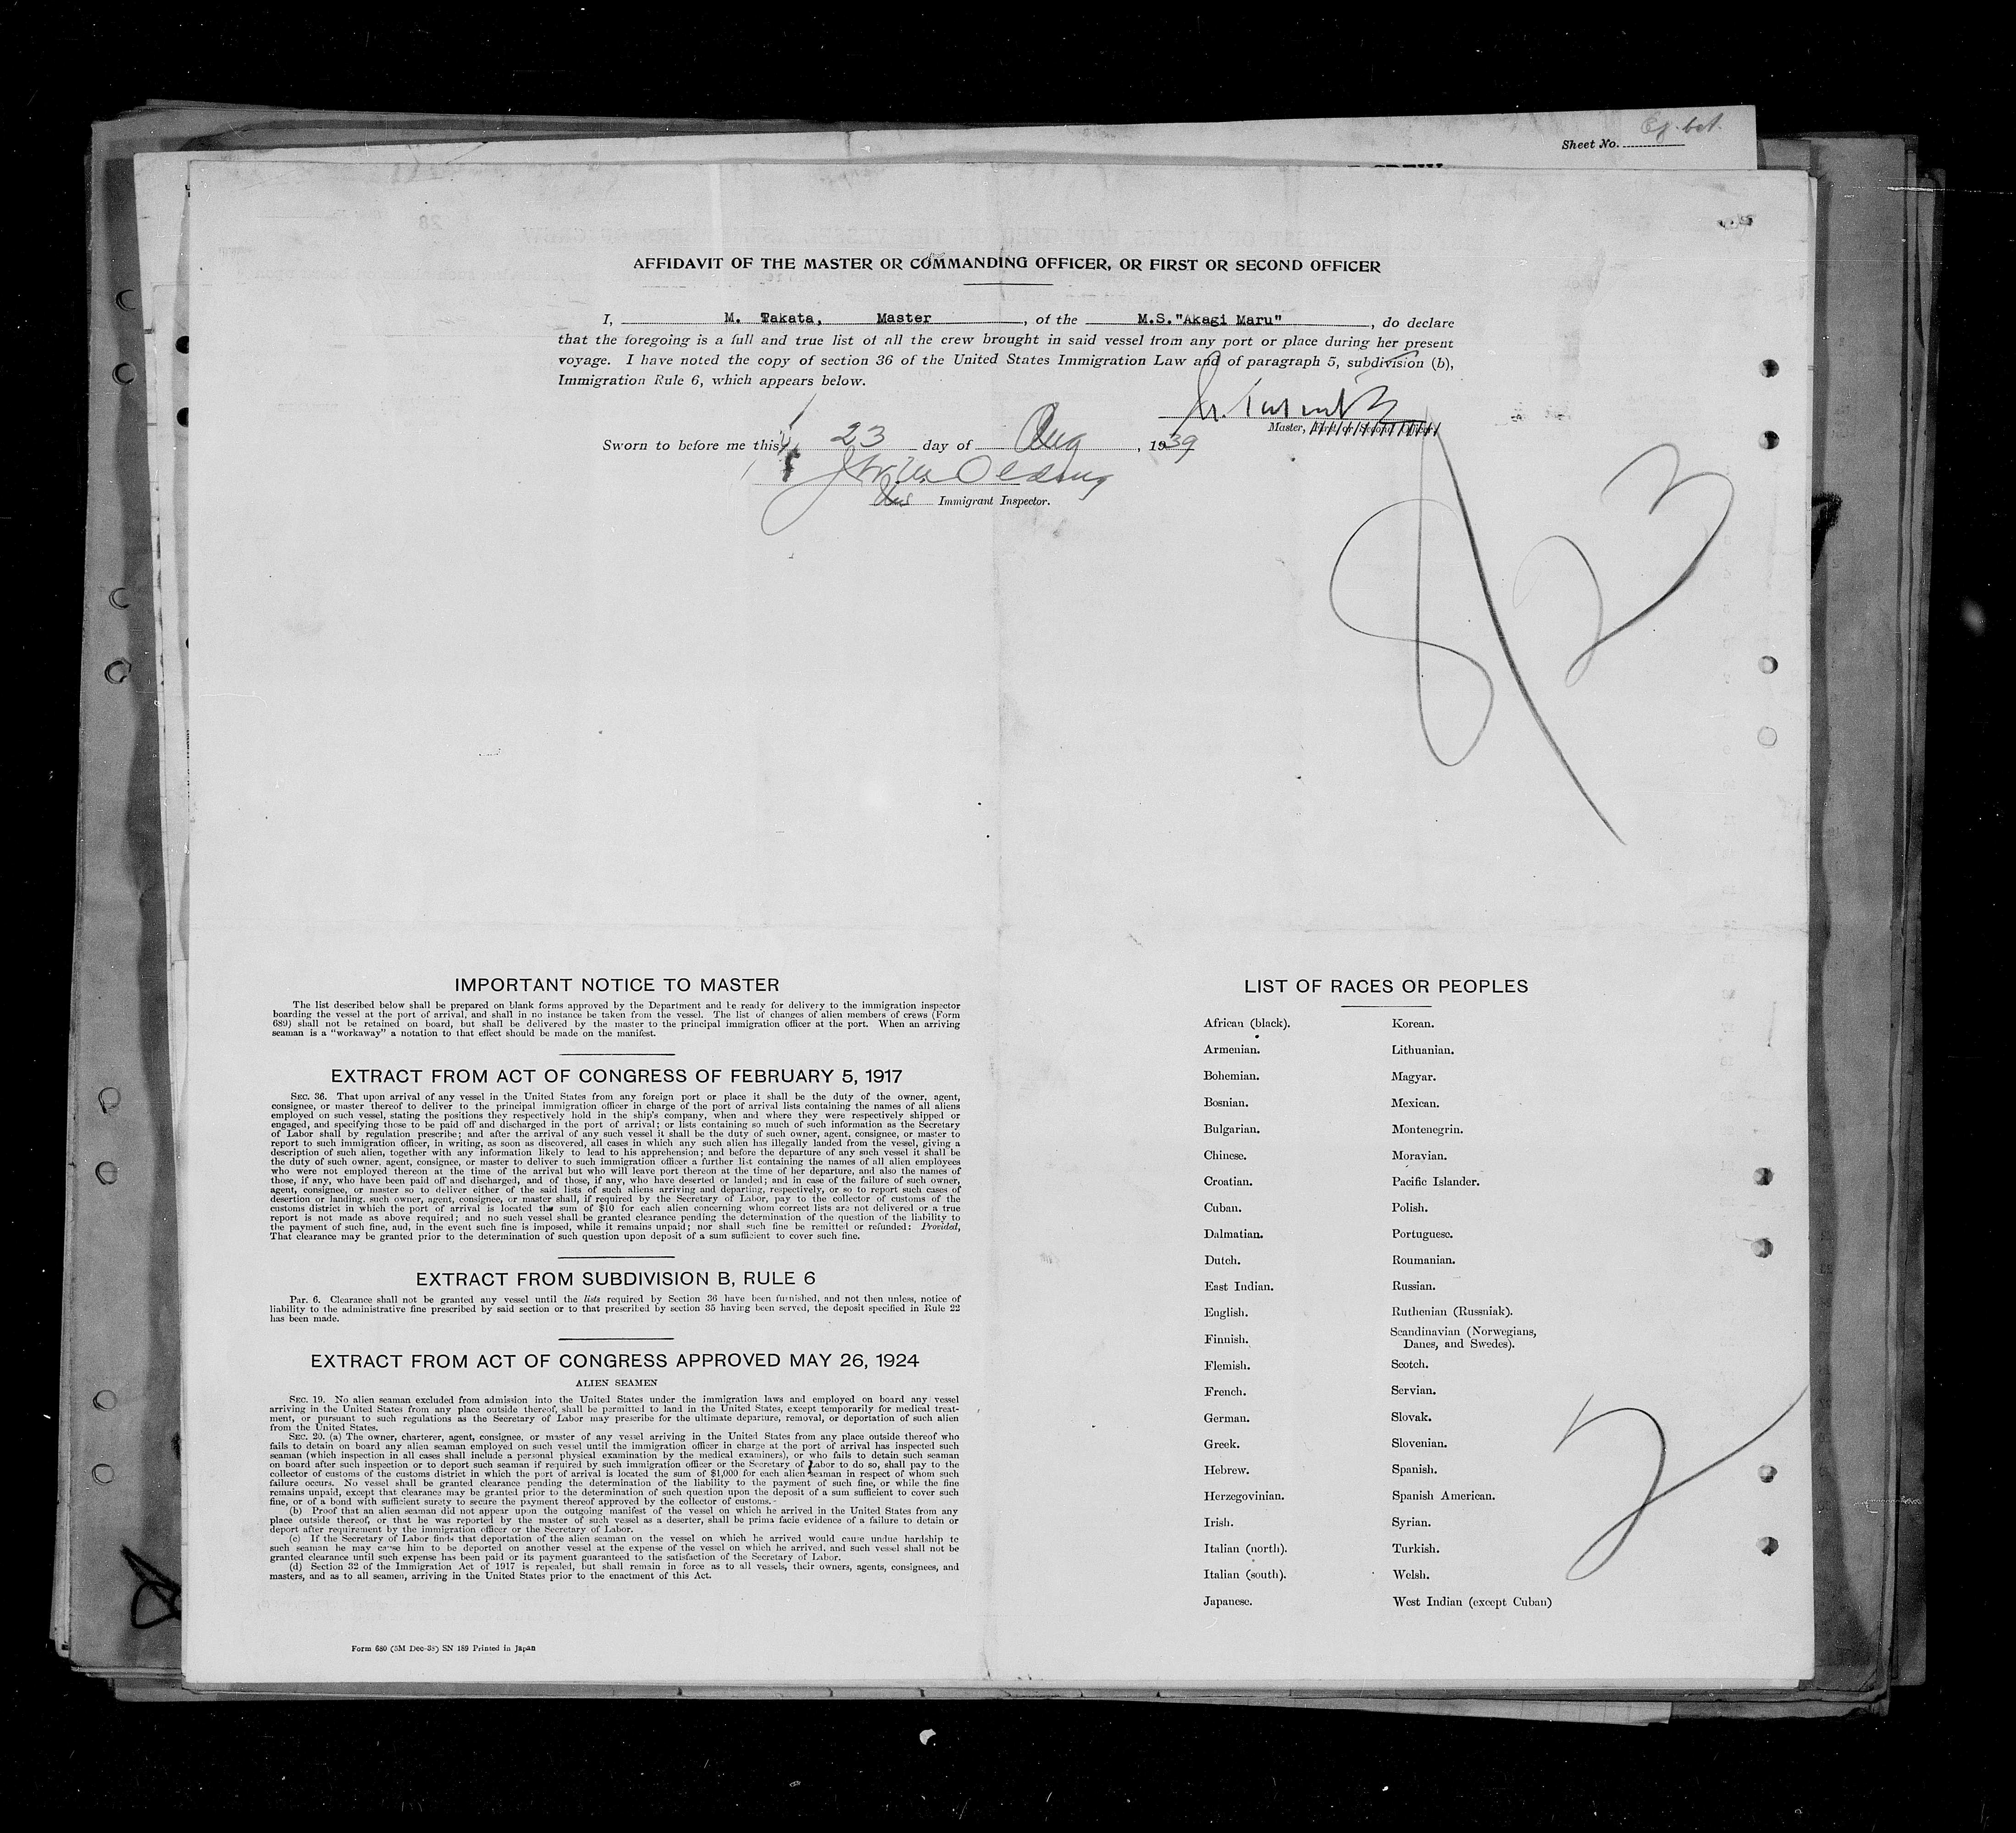 Sheet No.
AFFIDAVIT OF THE MASTER OR COMMANDING OFFICER, OR FIRST OR SECOND OFFICER
I, M. Takata, Master, of the M.S."Akagi Maru", do declare
that the foregoing is a full and true list of all the crew brought in said vessel from any port or place during her present
voyage. I have noted the copy of section 36 of the United States Immigration Law and of paragraph 5, subdivision (b),
Immigration Rule 6, which appears below.
Master, First or Second Officer.
Sworn to before me this 23 day of Aug, 1939
Immigrant Inspector.
8/23
IMPORTANT NOTICE TO MASTER
The list described below shall be prepared on blank forms approved by the Department and be ready for delivery to the immigration inspector
boarding the vessel at the port of arrival, and shall in no instance be taken from the vessel. The list of changes of alien members of crews (Form
689) shall not be retained on board, but shall be delivered by the master to the principal immigration officer at the port. When an arriving
seaman is a "workaway" a notation to that effect should be made on the manifest.
EXTRACT FROM ACT OF CONGRESS OF FEBRUARY 5, 1917
SEC. 36. That upon arrival of any vessel in the United States from any foreign port or place it shall be the duty of the owner, agent,
consignee, or master thereof to deliver to the principal immigration officer in charge of the port of arrival lists containing the names of all aliens
employed on such vessel, stating the positions they respectively hold in the ship's company, when and where they were respectively shipped or
engaged, and specifying those to be paid off and discharged in the port of arrival; or lists containing so much of such information as the Secretary
of Labor shall by regulation prescribe; and after the arrival of any such vessel it shall be the duty of such owner, agent, consignee, or master to
report to such immigration officer, in writing, as soon as discovered, all cases in which any such alien has illegally landed from the vessel, giving a
description of such alien, together with any information likely to lead to his apprehension; and before the departure of any such vessel it shall be
the duty of such owner, agent, consignee, or master to deliver to such immigration officer a further list containing the names of all alien employees
who were not employed thereon at the time of the arrival but who will leave port thereon at the time of her departure, and also the names of
those, if any, who have been paid off and discharged, and of those, if any, who have deserted or landed; and in case of the failure of such owner,
agent, consignee, or master so to deliver either of the said lists of such aliens arriving and departing, respectively, or so to report such cases of
desertion or landing, such owner, agent, consignee, or master shall, if required by the Secretary of Labor, pay to the collector of customs of the
customs district in which the port of arrival is located the sum of $10 for each alien concerning whom correct lists are not delivered or a true
report is not made as above required; and no such vessel shall be granted clearance pending the determination of the question of the liability to
the payment of such fine, and, in the event such fine is imposed, while it remains unpaid; nor shall such fine be remitted or refunded: Provided,
That clearance may be granted prior to the determination of such question upon deposit of a sum sufficient to cover such fine.
EXTRACT FROM SUBDIVISION B, RULE 6
Par. 6. Clearance shall not be granted any vessel until the lists required by Section 36 have been furnished, and not then unless, notice of
liability to the administrative fine prescribed by said section or to that prescribed by section 35 having been served, the deposit specified in Rule 22
has been made.
EXTRACT FROM ACT OF CONGRESS APPROVED MAY 26, 1924
ALIEN SEAMEN
SEC. 19. No alien seaman excluded from admission into the United States under the immigration laws and employed on board any vessel
arriving in the United States from any place outside thereof, shall be permitted to land in the United States, except temporarily for medical treat-
ment, or pursuant to such regulations as the Secretary of Labor may prescribe for the ultimate departure, removal, or deportation of such alien
from the United States.
SEC. 20. (a) The owner, charterer, agent, consignee, or master of any vessel arriving in the United States from any place outside thereof who
fails to detain on board any alien seaman employed on such vessel until the immigration officer in charge at the port of arrival has inspected such
seaman (which inspection in all cases shall include a personal physical examination by the medical examiners), or who fails to detain such seaman
on board after such inspection or to deport such seaman if required by such immigration officer or the Secretary of Labor to do so, shall pay to the
collector of customs of the customs district in which the port of arrival is located the sum of $1,000 for each alien seaman in respect of whom such
failure occurs. No vessel shall be granted clearance pending the determination of the liability to the payment of such fine, or while the fine
remains unpaid, except that clearance may be granted prior to the determination of such question upon the deposit of a sum sufficient to cover such
fine, or of a bond with sufficient surety to secure the payment thereof approved by the collector of customs.
(b) Proof that an alien seaman did not appear upon the outgoing manifest of the vessel on which he arrived in the United States from any
place outside thereof, or that he was reported by the master of such vessel as a deserter, shall be prima facie evidence of a failure to detain or
deport after requirement by the immigration officer or the Secretary of Labor.
(c) If the Secretary of Labor finds that deportation of the alien seaman on the vessel on which he arrived would cause undue hardship to
such seaman he may cause him to be deported on another vessel at the expense of the vessel on which he arrived, and such vessel shall not be
granted clearance until such expense has been paid or its payment guaranteed to the satisfaction of the Secretary of Labor.
(d) Section 32 of the Immigration Act of 1917 is repealed, but shall remain in force as to all vessels, their owners, agents, consignees, and
masters, and as to all seamen, arriving in the United States prior to the enactment of this Act.
Form 680 (5M Dec-38) SN 189 Printed in Japan
LIST OF RACES OR PEOPLES
African (black). Korean.
Armenian. Lithuanian.
Bohemian. Magyar.
Bosnian. Mexican.
Bulgarian. Montenegrin.
Chinese. Moravian.
Croatian. Pacific Islander.
Cuban. Polish.
Dalmatian. Portuguese.
Dutch. Roumanian.
East Indian. Russian.
English. Ruthenian (Russniak).
Finnish. Scandinavian (Norwegians,
Danes, and Swedes).
Flemish. Scotch.
French. Servian.
German. Slovak.
Greek. Slovenian.
Hebrew. Spanish.
Herzegovinian. Spanish American.
Irish. Syrian.
Italian (north). Turkish.
Italian (south). Welsh.
Japanese. West Indian (except Cuban)
2